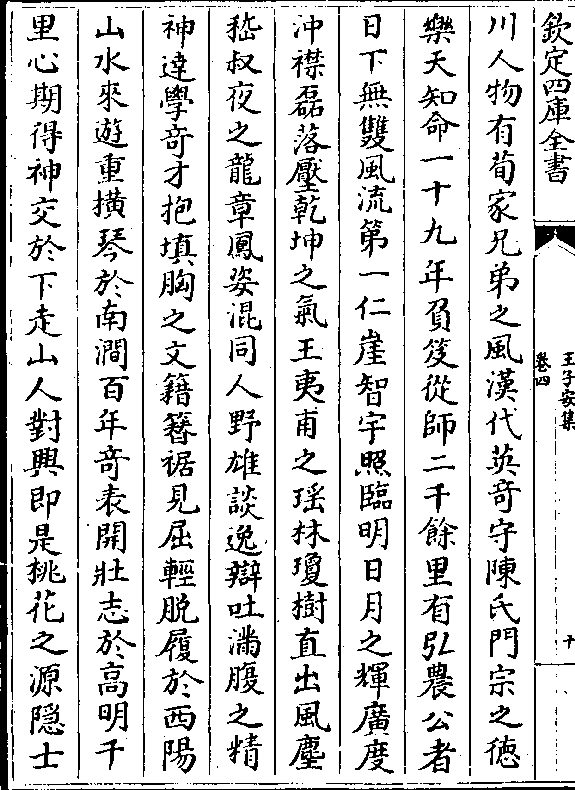 欽定四庫全書
王子安集
卷四
十
川人物有荀家兄弟之風漢代英奇守陳氏門宗之徳
樂天知命一十九年負笈從師二千餘里有弘農公者
日下無雙風流第一仁崖智宇照臨明日月之輝廣度
冲襟磊落壓乾坤之氣王夷甫之瑶林瓊樹直出風塵
嵇叔夜之龍章鳳姿混同人野雄談逸辯吐滿腹之精
神達學奇才抱填胸之文籍簪裾見屈輕脱履於西陽
山水來遊重横琴於南澗百年奇表開壯志於高明千
里心期得神交於下走山人對興即是桃花之源隠士